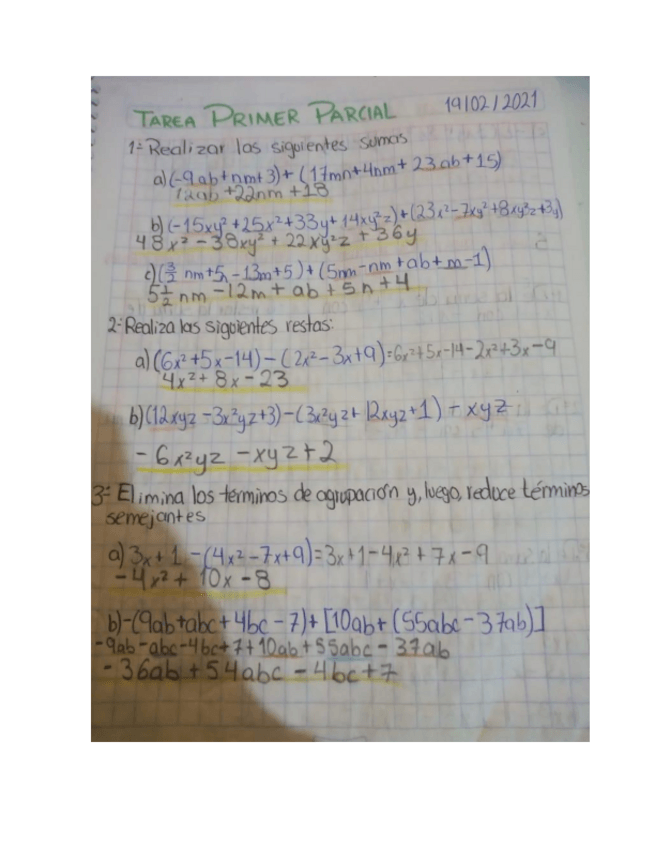 TAREA PRIMER PARCIAL 19/02/2021
1- Realizar las siguientes sumas
a) (-9ab+nm+3)+(17mn+4nm+23ab+15)
12ab+22nm+18
b) (-15xy²+25x²+33y+14xy²z)+(23x²-7xy²+8xy²z+3y)
48x²-38xy²+22xy²z+36y
c) (3/2 nm+5n-13m+5)+(5nm-nm+ab+m-1)
5 1/2 nm-12m+ab+5n+4
2- Realiza las siguientes restas:
a) (6x²+5x-14)-(2x²-3x+9)=6x²+5x-14-2x²+3x-9
4x²+8x-23
b) (12xyz-3x²yz+3)-(3x²yz+12xyz+1)-xyz
-6x²yz-xyz+2
3- Elimina los términos de agrupación y, luego, reduce términos
semejantes
a) 3x+1-(4x²-7x+9)=3x+1-4x²+7x-9
-4x²+10x-8
b) -(9ab+abc+4bc-7)+[10ab+(55abc-37ab)]
-9ab-abc-4bc+7+10ab+55abc-37ab
-36ab+54abc-4bc+7